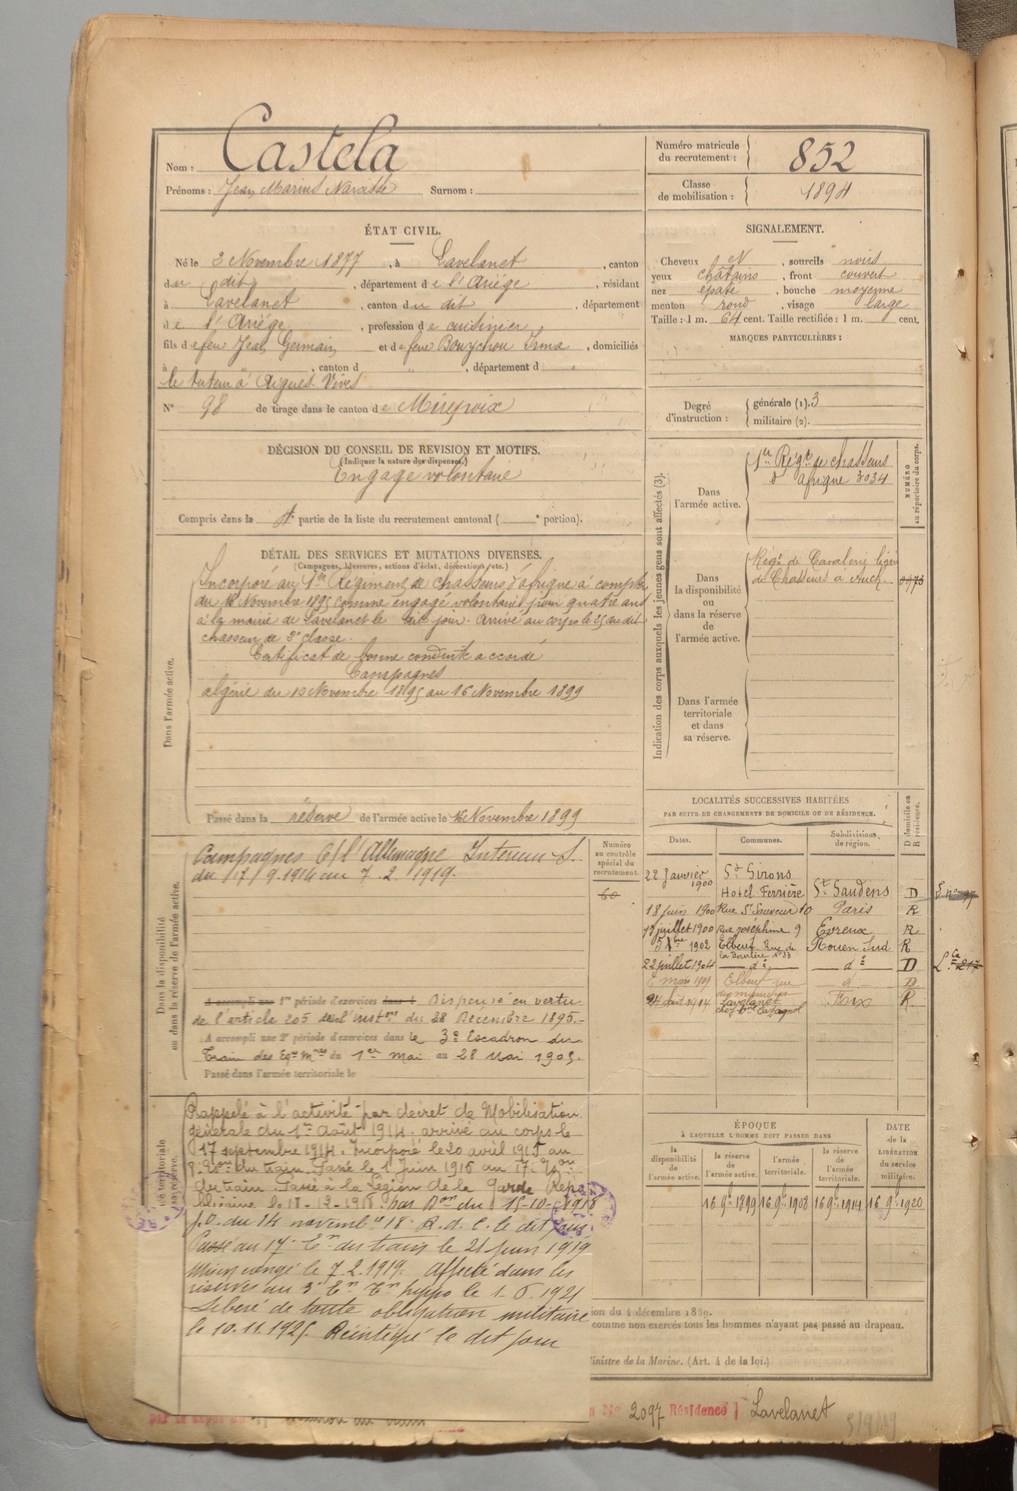 Nom : Castela
Prénoms : Jean Marius Narcisse Surnom :
Numéro matricule du recrutement : 852
Classe de mobilisation : 1894
ÉTAT CIVIL.
Né le 2 Novembre 1877, à Lavelanet, canton
du dit, département de l'Ariège, résidant
à Lavelanet, canton du dit, département
de l'Ariège, profession de cuisinier
fils de feu Jean Germain et de feue Bouychou Irma, domiciliés
à , canton d " , département d "
le tuteur à Aigues Vives
N° 98 de tirage dans le canton de Mirepoix
SIGNALEMENT.
Cheveux N, sourcils noirs
yeux châtains, front couvert
nez épaté, bouche moyenne
menton rond, visage large
Taille : 1 m. 64 cent. Taille rectifiée : 1 m. cent.
MARQUES PARTICULIÈRES :
Degré d'instruction : générale (1). 3
militaire (2).
DÉCISION DU CONSEIL DE REVISION ET MOTIFS.
(Indiquer la nature des dispenses.)
Engagé volontaire
Compris dans la partie de la liste du recrutement cantonal ( ° portion).
DÉTAIL DES SERVICES ET MUTATIONS DIVERSES.
(Campagnes, blessures, actions d'éclat, décorations, etc.)
Dans l'armée active.
Incorporé au 1er Régiment de chasseurs d'afrique à compter
du Novembre 1895 comme engagé volontaire pour quatre ans
à la mairie de Lavelanet le dit jour. Arrivé au corps le du dit
chasseur de 2e classe.
Certificat de bonne conduite accordé
Campagnes
algérie du Novembre 1895 au 16 Novembre 1899
Passé dans la réserve de l'armée active le Novembre 1899
Indication des corps auxquels les jeunes gens sont affectés (3).
NUMÉRO au répertoire du corps.
Dans l'armée active.
1er Régt de chasseurs
d'afrique 3034
Dans la disponibilité ou dans la réserve de l'armée active.
Régt de Cavalerie légère
de Chasseurs à Auch
Dans l'armée territoriale et dans sa réserve.
Dans la disponibilité ou dans la réserve de l'armée active.
Campagnes C/ l'Allemagne Intérieur S.
du 17/9.1914 au 7.2.1919.
A accompli une 1re période d'exercices dans Dispensé en vertu
de l'article 205 de l'inston du 28 Décembre 1895.
A accompli une 2e période d'exercices dans le 3e Escadron du
Train des Eqes Mres du 1er mai au 28 Mai 1905.
Passé dans l'armée territoriale le
Numéro au contrôle spécial du recrutement.
60
LOCALITÉS SUCCESSIVES HABITÉES
PAR SUITE DE CHANGEMENTS DE DOMICILE OU DE RÉSIDENCE.
Dates. Communes. Subdivisions de région. D domicile ou R résidence.
22 Janvier 1900 St Girons Hotel Ferrière St Gaudens D
18 juin 1900 Rue St Sauveur 10 Paris R
12 juillet 1900 Rue Joséphine 9 Evreux R
1902 Elbeuf. Rue de la Barrière N° 33 Rouen Sud R
22 juillet 1904 d° d° D
mars 1909 Elbeuf rue d° D
août 1914 Lavelanet Foix R
Rappelé à l'activité par décret de Mobilisation
générale du 1er Août 1914. arrivé au corps le
17 septembre 1914. Incorporé le 20 avril 1915 au
du train. Passé le 1er Juin 1916 au 17e
du train. Passé à la Légion de la Garde Répu-
blicaine le 18-12-1918 par Don du 15-10-1918
p.o. du 14 novembre 18. R. d. C. le dit jour
Passé au 17e Em du train le 21 juin 1919
Mis en congé le 7.2.1919. Affecté dans les
réserves au 3e Em Tn hippo le 1.6.1921
Libéré de toute obligation militaire
le 10.11.1925. Réintégré le dit jour
ÉPOQUE
À LAQUELLE L'HOMME DOIT PASSER DANS
la disponibilité de l'armée active. la réserve de l'armée active. l'armée territoriale. la réserve de l'armée territoriale.
DATE de la LIBÉRATION du service militaire.
16 9e 1899 16 9e 1908 16 9e 1914 16 9e 1920
comme non exercés tous les hommes n'ayant pas passé au drapeau.
Ministre de la Marine. (Art. 4 de la loi.)
2097 Résidence Lavelanet